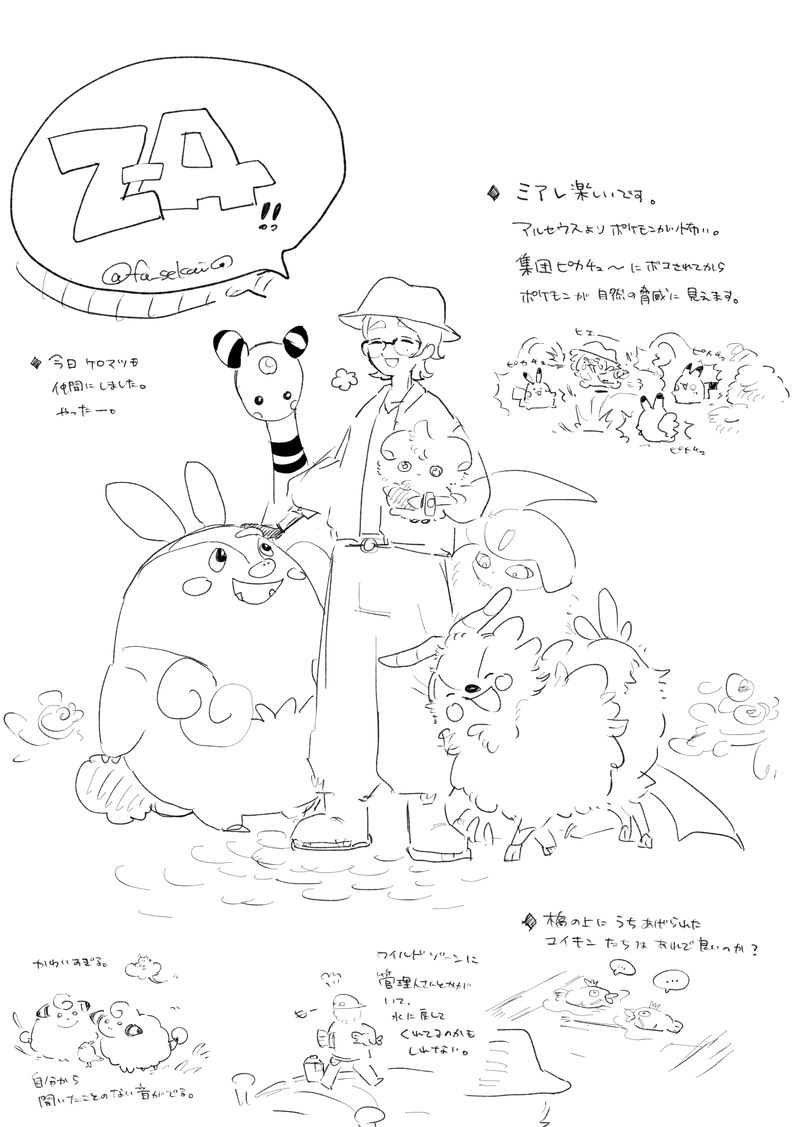 Z-A!!
@fa_sekai
◆ ミアレ楽しいです。
アルセウスよりポケモンが怖い。
集団ピカチュ〜にボコされてから
ポケモンが自然の脅威に見えます。
ヒエー
ピカチュ
ピカチュ
ピカチュ
◆ 今日ケロマツも
仲間にしました。
やったー。
◆ 橋の上にうちあげられた
コイキンたちはあれで良いのか?
...
...
ワイルドゾーンに
管理人さんとかが
いて、
水に戻して
くれてるのかも
しれない。
かわいすぎる。
自分から
聞いたことのない音がでる。